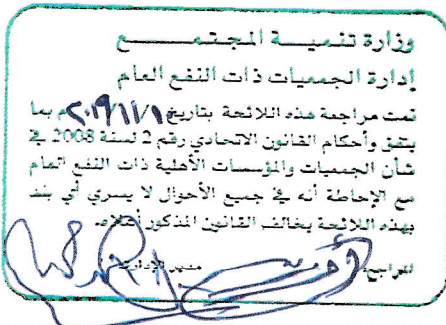 وزارة تنميـــة المجتمـــــع
إدارة الجمعيات ذات النفع العام
تمت مراجعة هذه اللائحة بتاريخ ٢٠١٩/١١/١م بما
يتفق وأحكام القانون الاتحادي رقم 2 لسنة 2008 في
شأن الجمعيات والمؤسسات الأهلية ذات النفع العام
مع الإحاطة أنه في جميع الأحوال لا يسري أي بند
بهذه اللائحة يخالف القانون المذكور أعلاه
المراجع: مدير الإدارة